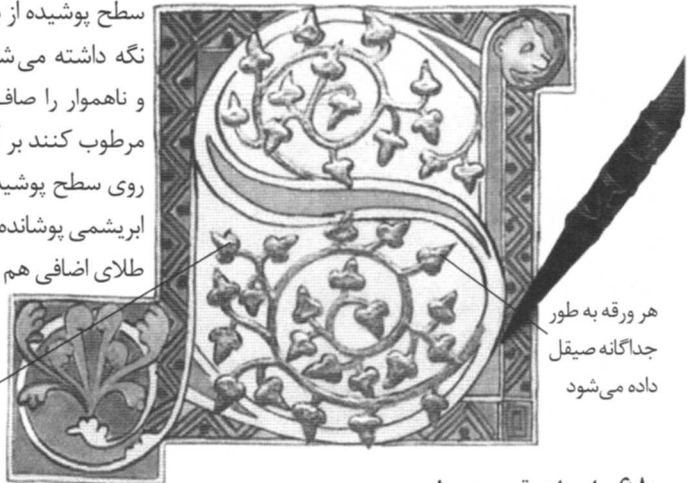 سطح پوشیده از
نگه داشته می‌ش
و ناهموار را صاف
مرطوب کنند بر
روی سطح پوشید
ابریشمی پوشانده
طلای اضافی هم
هر ورقه به طور
جداگانه صیقل
داده می‌شود